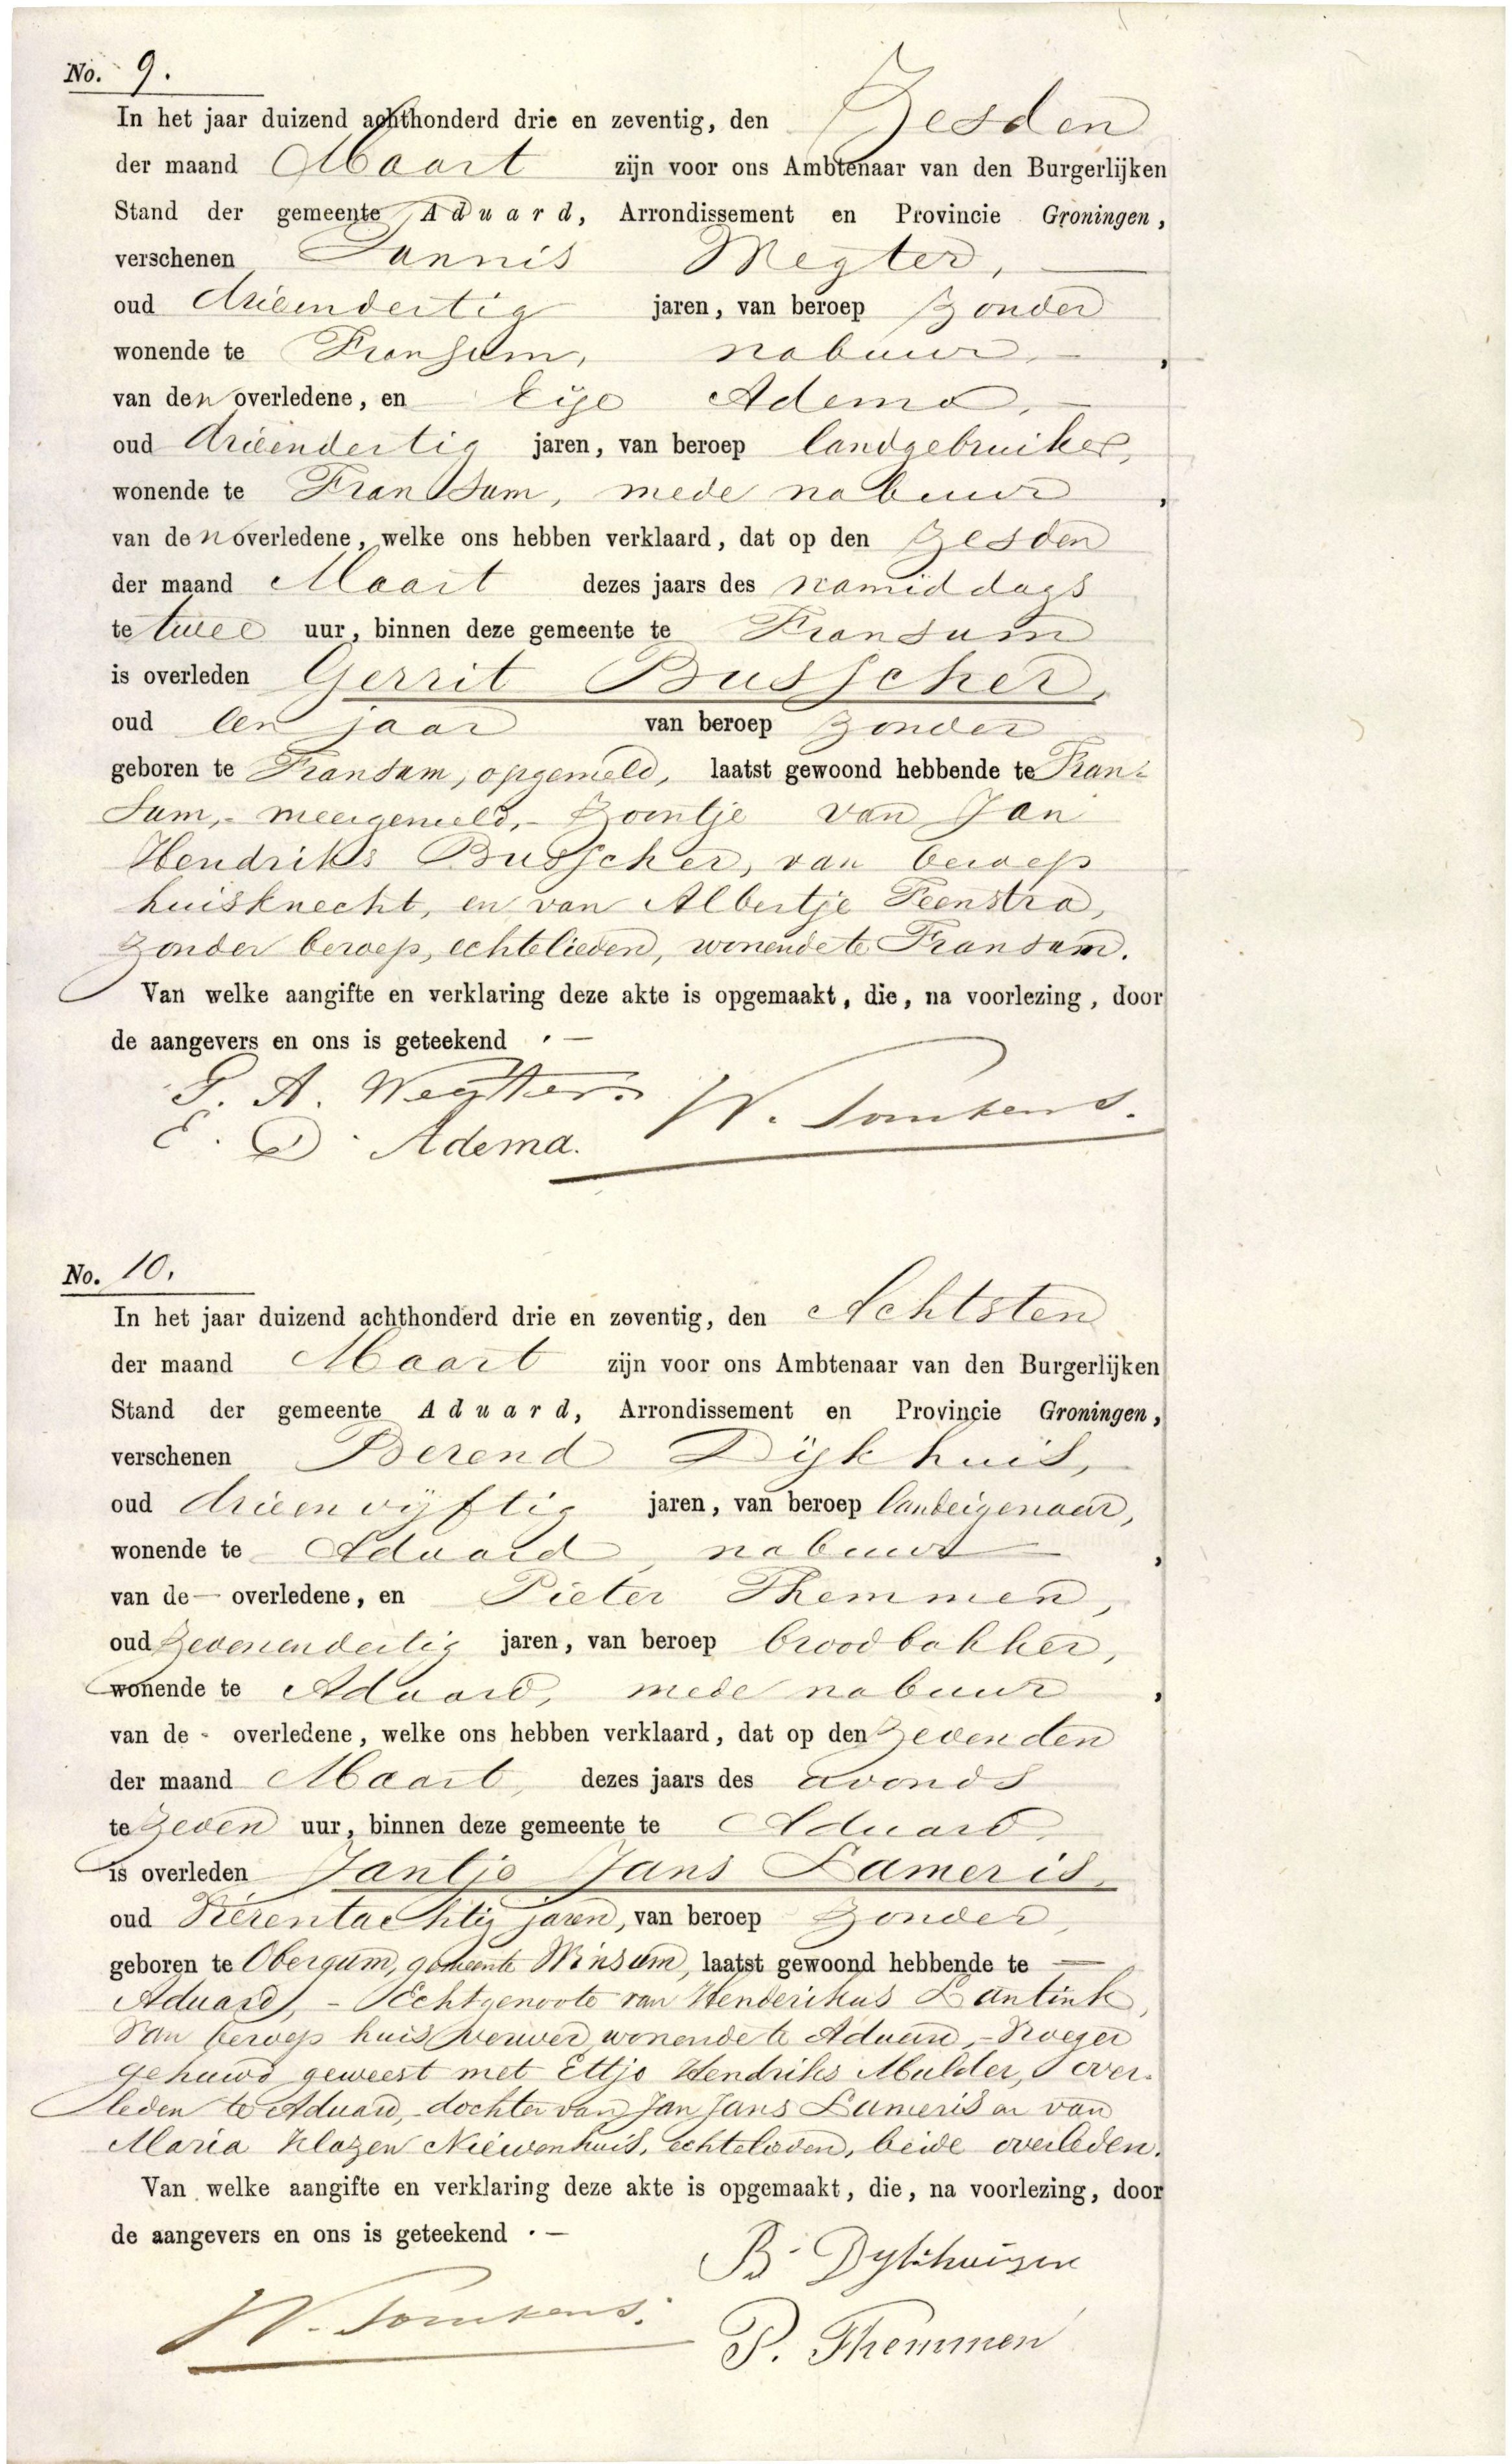 No. 9.
In het jaar duizend achthonderd drie en zeventig, den Zesden
der maand Maart zijn voor ons Ambtenaar van den Burgerlijken
Stand der gemeente Aduard, Arrondissement en Provincie Groningen,
verschenen Tannis Wegter,
oud drieendertig jaren, van beroep zonder
wonende te Fransum, nabuur,
van den overledene, en Eije Adema,
oud drieendertig jaren, van beroep landgebruiker,
wonende te Fransum, mede nabuur,
van den overledene, welke ons hebben verklaard, dat op den Zesden
der maand Maart dezes jaars des namiddags
te twee uur, binnen deze gemeente te Fransum
is overleden Gerrit Busscher,
oud een jaar van beroep zonder
geboren te Fransum, opgemeld, laatst gewoond hebbende te Fran-
sum, - meergemeld, - Zoontje van Jan
Hendriks Busscher, van beroep
huisknecht, en van Albertje Feenstra,
zonder beroep, echtelieden, wonende te Fransum.
Van welke aangifte en verklaring deze akte is opgemaakt, die, na voorlezing, door
de aangevers en ons is geteekend . —
A. Wegter.
W. Tonkens.
E. D. Adema.
No. 10.
In het jaar duizend achthonderd drie en zeventig, den Achtsten
der maand Maart zijn voor ons Ambtenaar van den Burgerlijken
Stand der gemeente Aduard, Arrondissement en Provincie Groningen,
verschenen Berend Dijkhuis,
oud drieenvijftig jaren, van beroep landeigenaar,
wonende te Aduard, nabuur,
van de — overledene, en Pieter Themmen,
oud zevenendertig jaren, van beroep broodbakker,
wonende te Aduard, mede nabuur,
van de - overledene, welke ons hebben verklaard, dat op den Zevenden
der maand Maart, dezes jaars des avonds
te zeven uur, binnen deze gemeente te Aduard,
is overleden Jantje Jans Lameris,
oud Vierentachtig jaren, van beroep zonder,
geboren te Obergum, gemeente Winsum, laatst gewoond hebbende te —
Aduard, - Echtgenoote van Henderikus Lantink,
van beroep huisverwer, wonende te Aduard, - vroeger
gehuwd geweest met Eltjo Hendriks Mulder, over-
leden te Aduard, - dochter van Jan Jans Lameris en van
Maria Klazen Niewenhuis, echtelieden, beide overleden.
Van welke aangifte en verklaring deze akte is opgemaakt, die, na voorlezing, door
de aangevers en ons is geteekend . —
B. Dijkhuizen
W. Tonkens.
P. Themmen